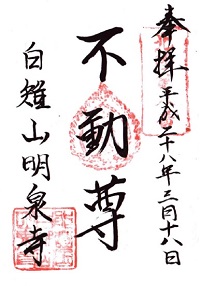 奉拝 平成二十八年三月十八日
不動尊
白雉山明泉寺